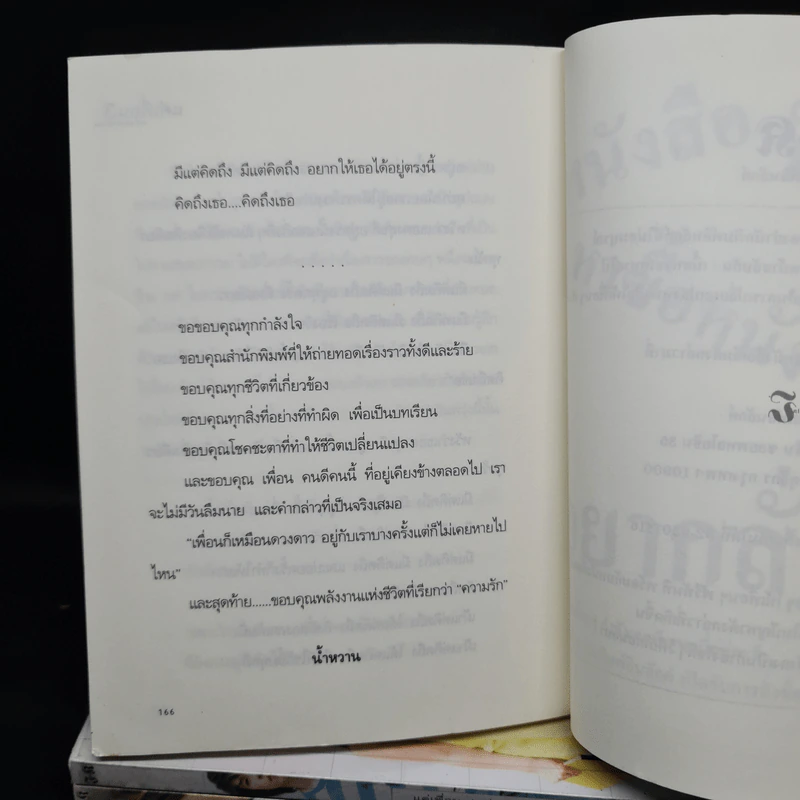 มีแต่คิดถึง มีแต่คิดถึง อยากให้เธอได้อยู่ตรงนี้
คิดถึงเธอ....คิดถึงเธอ
.....
ขอขอบคุณทุกกำลังใจ
ขอบคุณสำนักพิมพ์ที่ให้ถ่ายทอดเรื่องราวทั้งดีและร้าย
ขอบคุณทุกชีวิตที่เกี่ยวข้อง
ขอบคุณทุกสิ่งที่อย่างที่ทำผิด เพื่อเป็นบทเรียน
ขอบคุณโชคชะตาที่ทำให้ชีวิตเปลี่ยนแปลง
และขอบคุณ เพื่อน คนดีคนนี้ ที่อยู่เคียงข้างตลอดไป เรา
จะไม่มีวันลืมนาย และคำกล่าวที่เป็นจริงเสมอ
"เพื่อนก็เหมือนดวงดาว อยู่กับเราบางครั้งแต่ก็ไม่เคยหายไป
ไหน"
และสุดท้าย......ขอบคุณพลังงานแห่งชีวิตที่เรียกว่า "ความรัก"
น้ำหวาน
166